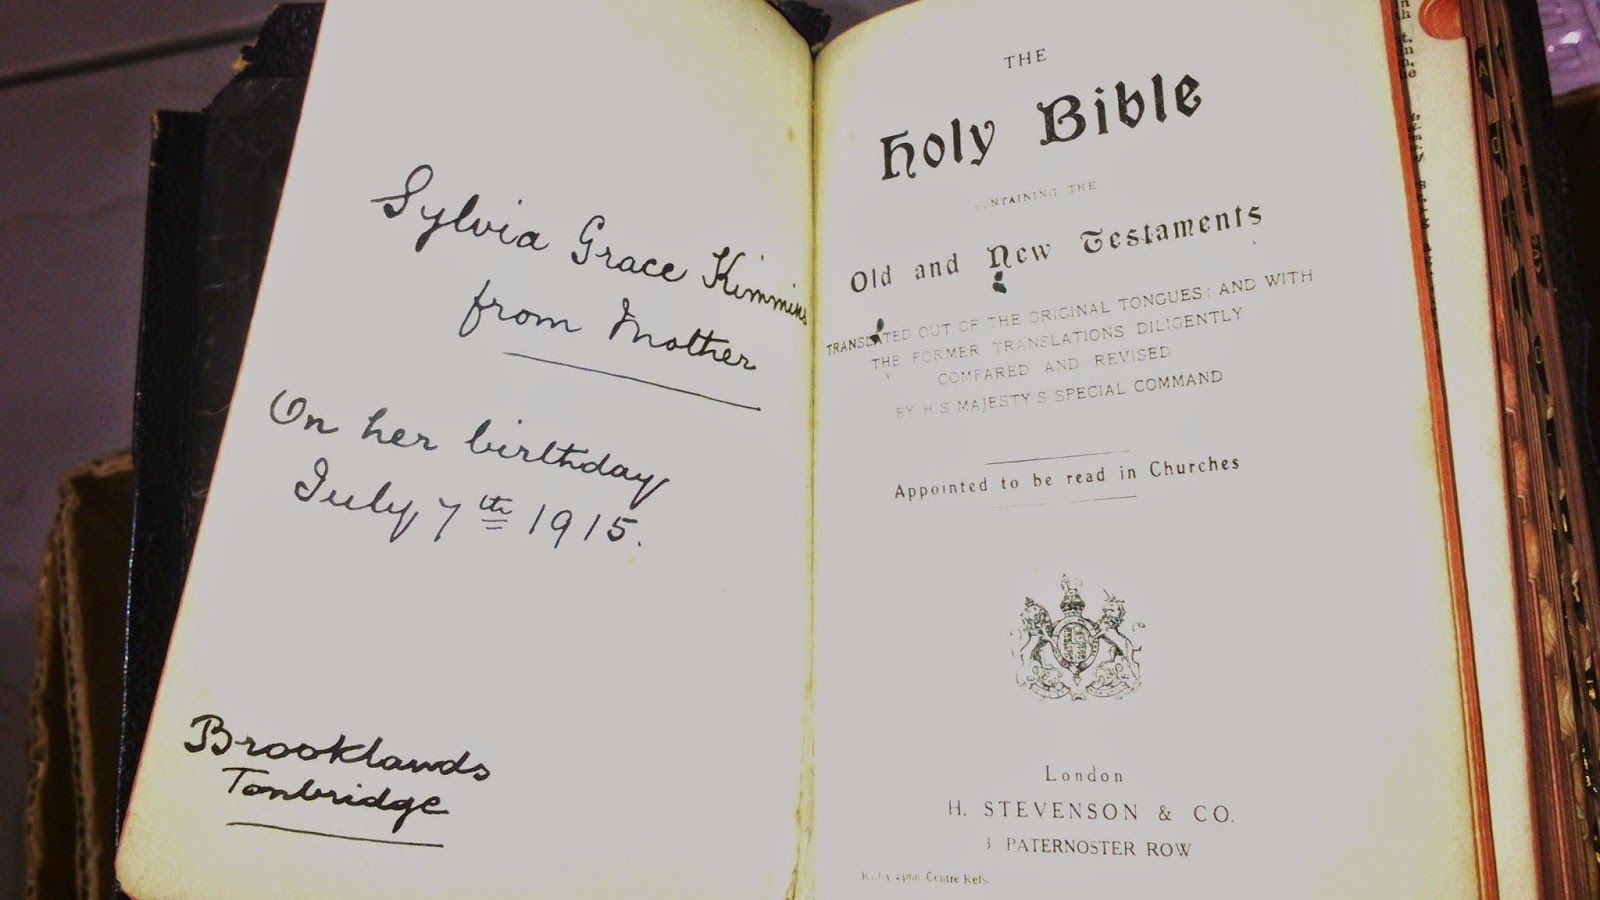 Sylvia Grace Kimmins
from Mother
On her birthday
July 7th 1915.
Brooklands
Tonbridge
THE
Holy Bible
CONTAINING THE
Old and New Testaments
TRANSLATED OUT OF THE ORIGINAL TONGUES: AND WITH
THE FORMER TRANSLATIONS DILIGENTLY
COMPARED AND REVISED
BY HIS MAJESTY'S SPECIAL COMMAND
Appointed to be read in Churches
London
H. STEVENSON & CO.
3 PATERNOSTER ROW
Centre Refs.